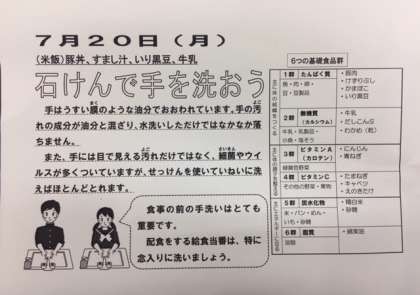 7月20日(月)
(米飯)豚丼、すまし汁、いり黒豆、牛乳
石けんで手を洗おう
手はうすい膜のような油分でおおわれています。手の汚
れの成分が油分と混ざり、水洗いしただけではなかなか落
ちません。
また、手には目で見える汚れだけではなく、細菌やウイ
ルスが多くついていますが、せっけんを使いていねいに洗
えばほとんどとれます。
食事の前の手洗いはとても
重要です。
配食をする給食当番は、特に
念入りに洗いましょう。
6つの基礎食品群
1群 たんぱく質
魚・肉・卵・
豆・豆製品
・豚肉
・けずりぶし
・かまぼこ
・いり黒豆
2群 無機質
(カルシウム)
牛乳・乳製品・
小魚・海そう
・牛乳
・だしこんぶ
・わかめ(乾)
3群 ビタミンA
(カロテン)
緑黄色野菜
・にんじん
・青ねぎ
4群 ビタミンC
その他の野菜・果物
・たまねぎ
・キャベツ
・えのきたけ
5群 炭水化物
米・パン・めん・
いも・砂糖
・精白米
・砂糖
6群 脂質
油脂
・綿実油